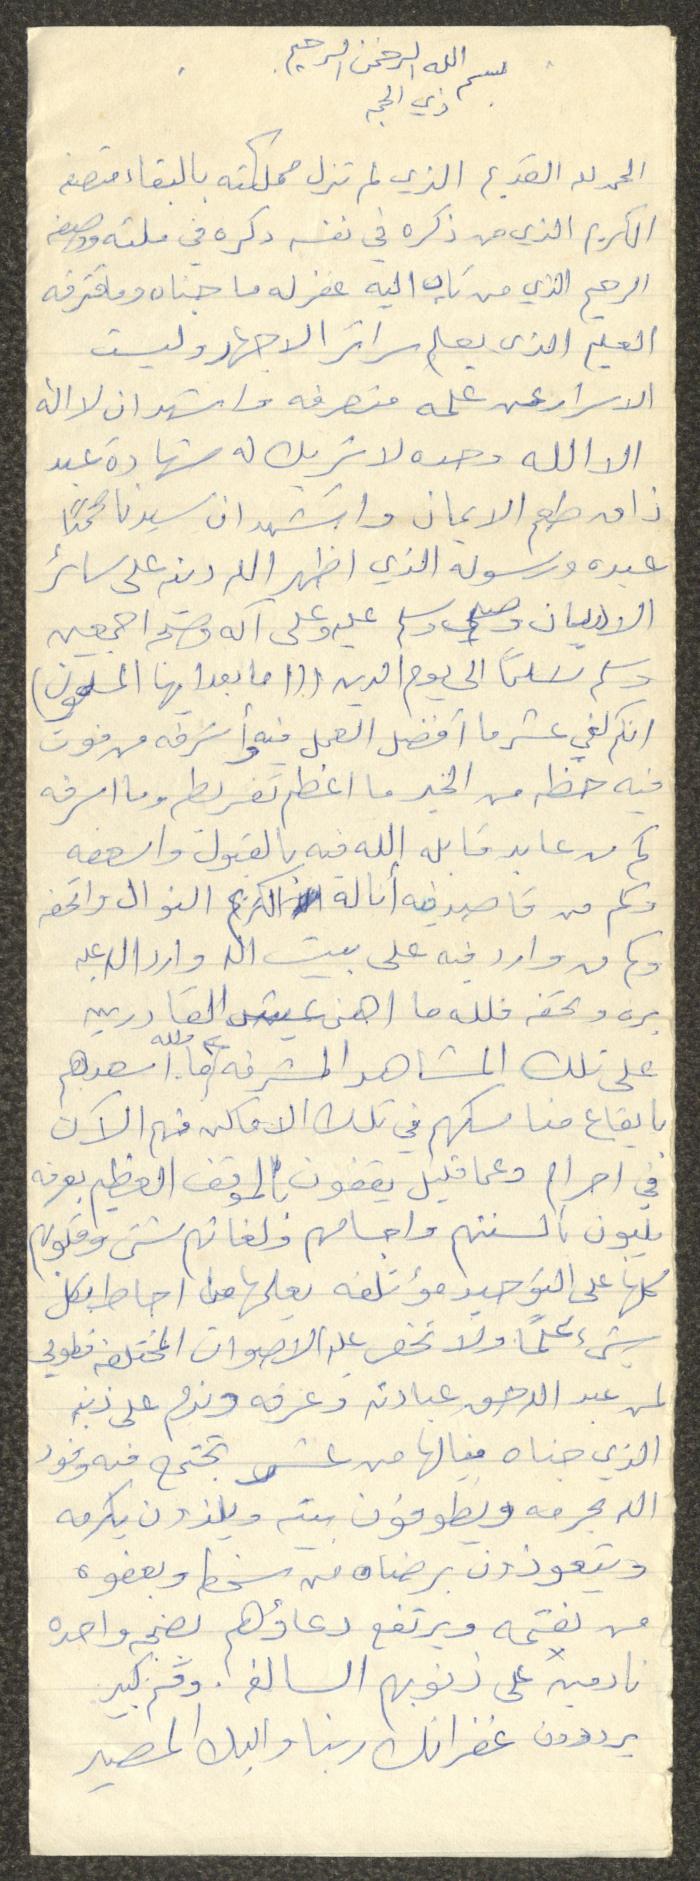 بسم الله الرحمن الرحيم
ذي الحجه
الحمد لله القديم الذي لم تزل مملكته بالبقاء متصفه
الكريم الذي من ذكره في نفسه ذكره في ملئه ووصفه
الرحيم الذي من تاب اليه غفر له ما جناه وما قترفه
العليم الذي يعلم سرائر الاجهار وليست
الاسرار عن علمه منصرفه واشهد ان لا اله
الا الله وحده لا شريك له شهادة عبد
ذاق طعم الايمان واشهد ان سيدنا محمدًا
عبده ورسوله الذي اظهر الله دينه على سائر
الاديان وصلى وسلم عليه وعلى آله وصحبه اجمعين
وسلم تسلمًا الى يوم الدين ((اما بعد ايها المسلمون)
انكم لفي عشر ما أفضل العمل فيه وأشرفه من فوت
فيه حظه من الخير ما اعظم تفريطه وما اسرفه
كم من عابد قابله الله فيه بالقبول واسعفه
وكم من قاصد فيه أناله الكريم النوال واتحفه
وكم من وارد فيه على بيت الله وارد الله عليه
بره وتحفه فلله ما اهنى عيش القادرين
على تلك المشاهد المشرفه وما والله اسعدهم
بايقاع مناسكهم في تلك الاماكن فهم الآن
في احرام وعما قليل يقفون بالموقف العظيم بعرفه
يلبون بالسنتهم واجسامهم ولغاتهم شتى وقلوبهم
كلها على التوحيد مؤتلفه يعلمها من احاط بكل
شيء علمًا ولا تخفى عليه الاصوات المختلفه فطوبى
لمن عبد الله حق عبادته وعرفه وندم على ذنبه
الذي جناه فيالها من عشر تجتمع فيه وفود
الله بحرمه ويطوفون ببيته ويلذون بكرمه
ويتعوذون برضاه من سخطه وبعفوه
من نقمته ويرتفع دعاؤهم بضجه واحده
نادمين على ذنوبهم السالفه. وكم كبير
يرددون غفرانك ربنا واليك المصير